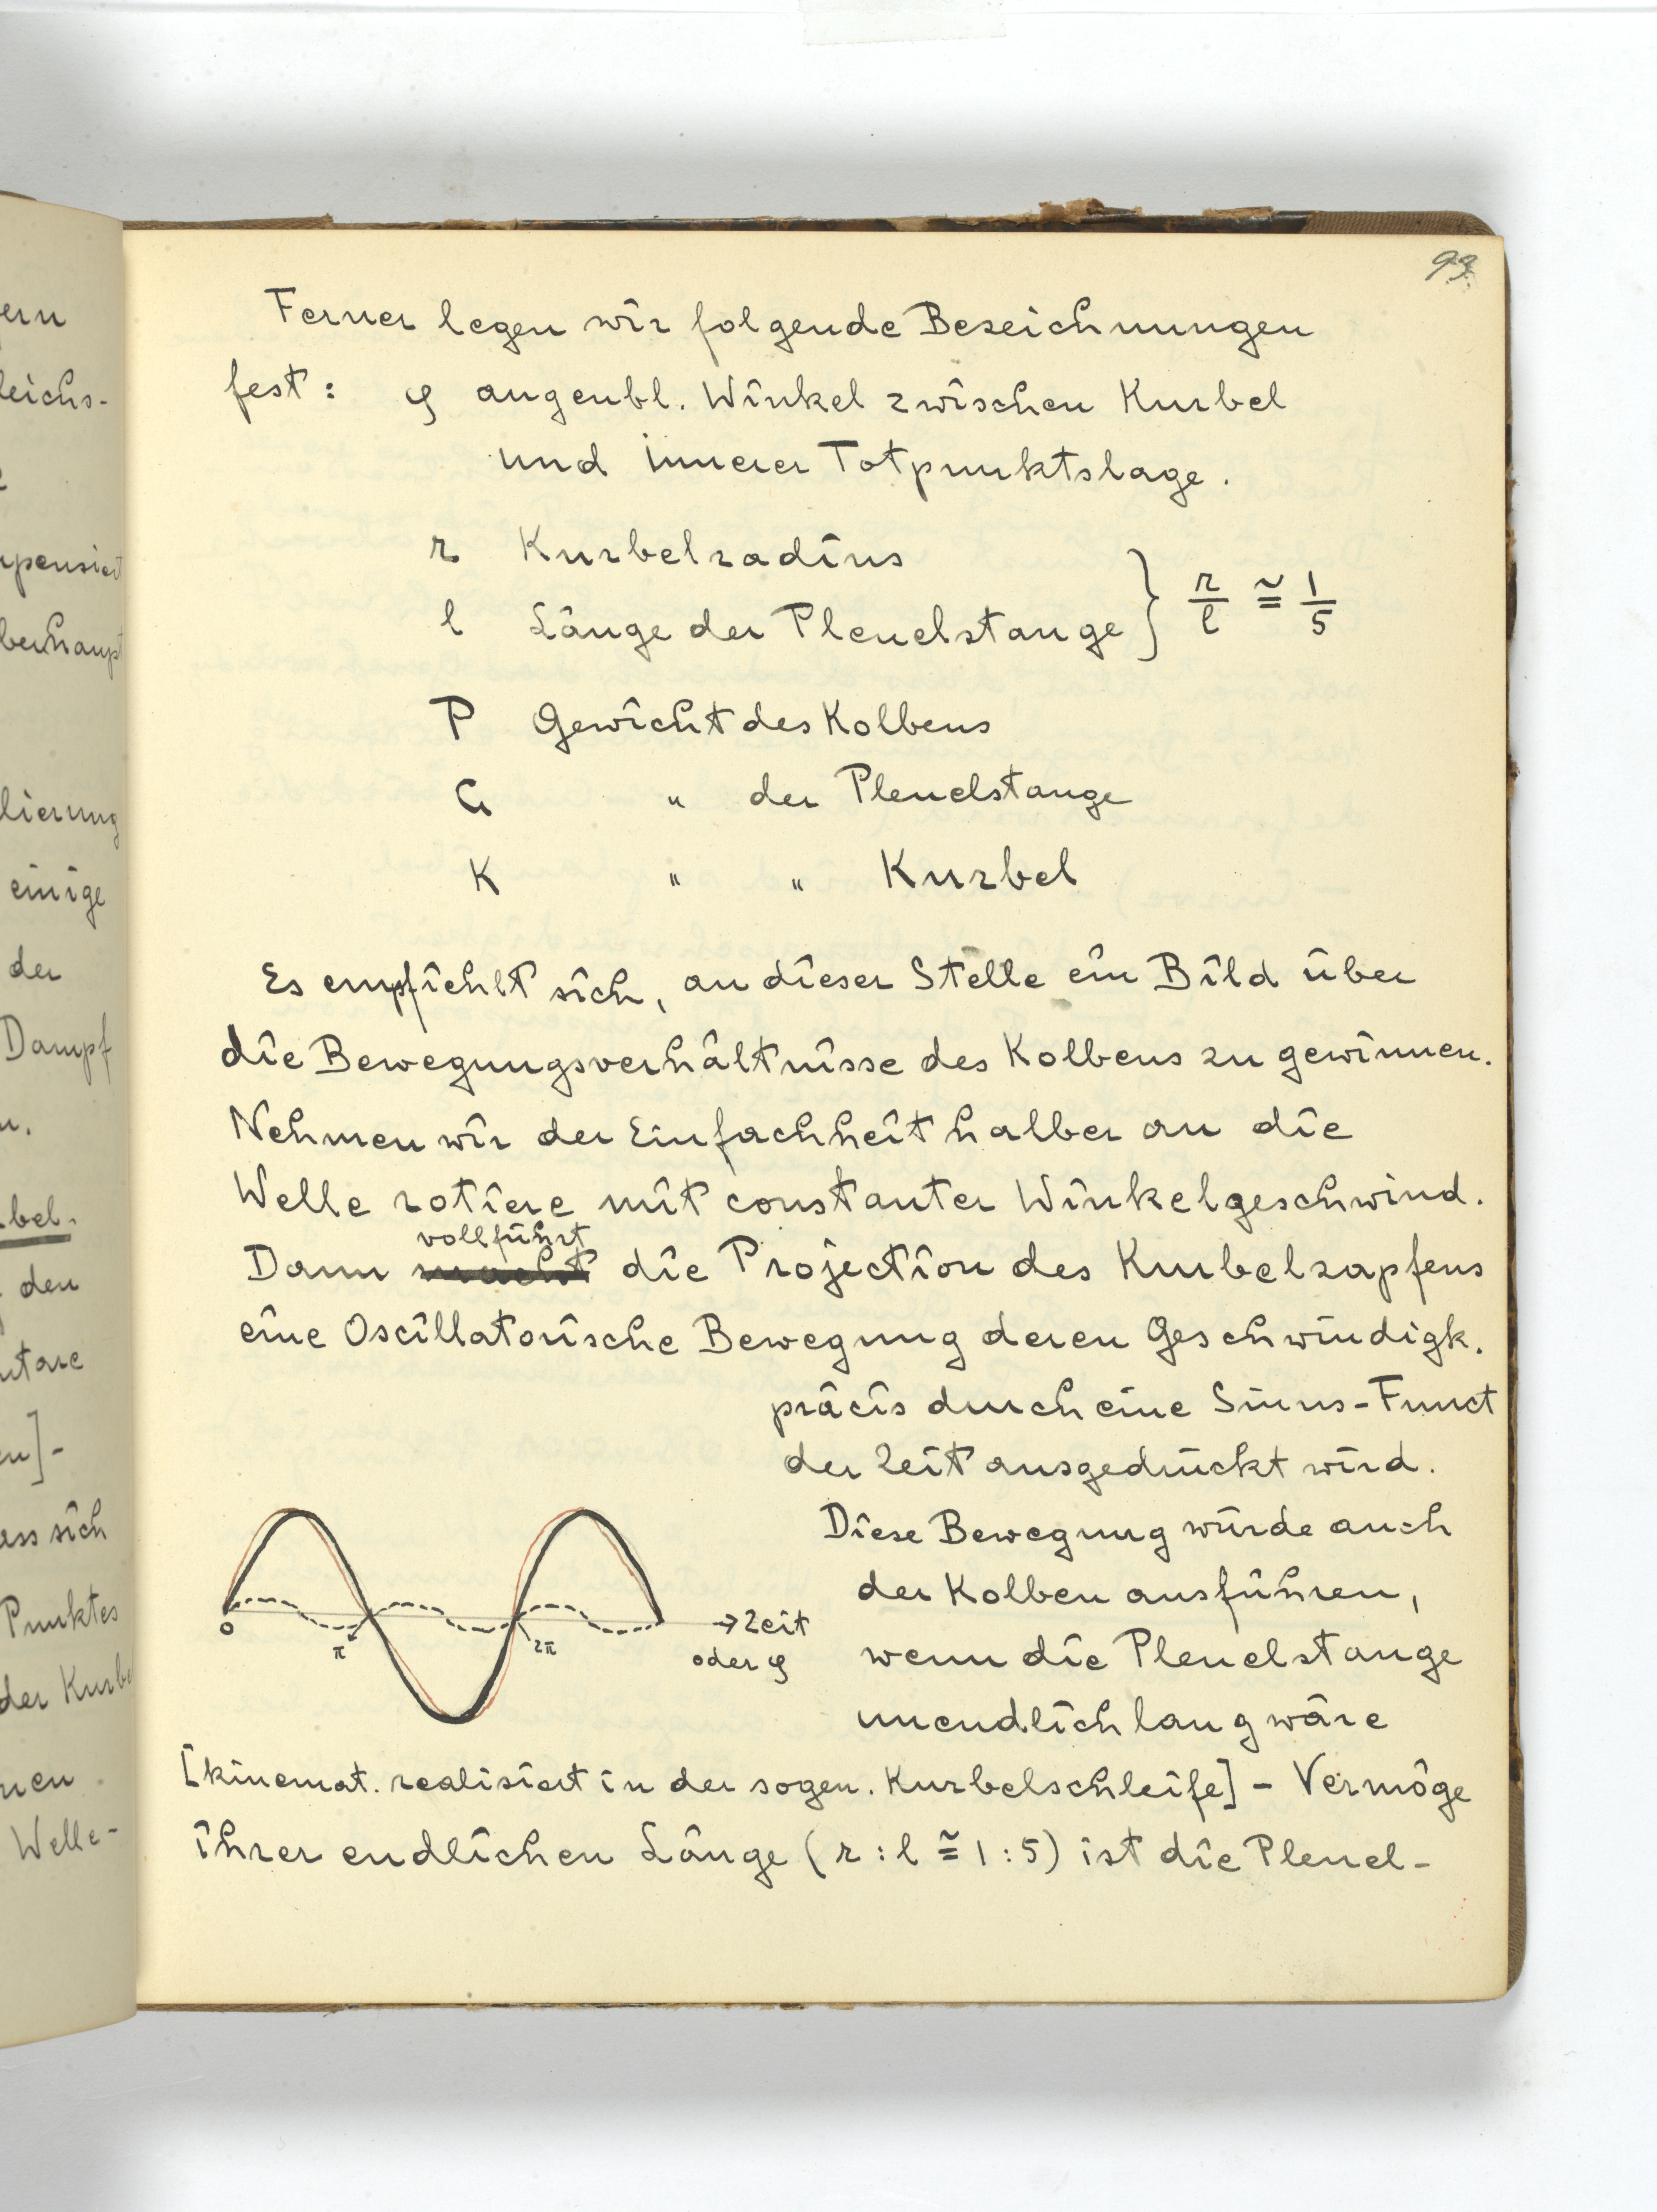 93.
Ferner legen wir folgende Bezeichnungen
fest: φ augenbl. Winkel zwischen Kurbel
und innerer Totpunktslage.
r Kurbelradius
l Länge der Pleuelstange } r/l ≅ 1/5
P Gewicht des Kolbens
G " der Pleuelstange
K " " Kurbel
Es empfiehlt sich, an dieser Stelle ein Bild über
die Bewegungsverhältnisse des Kolbens zu gewinnen.
Nehmen wir der Einfachheit halber an die
Welle rotiere mit constanter Winkelgeschwind.
vollführt
Dann macht die Projection des Kurbelzapfens
eine Oscillatorische Bewegung deren Geschwindigk.
präcis durch eine Sinus-Funct
der Zeit ausgedrückt wird.
Diese Bewegung würde auch
der Kolben ausführen,
wenn die Pleuelstange
unendlich lang wäre
0 π 2π → Zeit
oder φ
[kinemat. realisiert in der sogen. Kurbelschleife] - Vermöge
ihrer endlichen Länge (r : l ≅ 1 : 5) ist die Pleuel-
ern
leichs-
pensiert
berhaupt
lierung
einige
der
Dampf
n.
bel.
den
ntare
en]-
ass sich
Punktes
der Kurbe
nen
Welle-